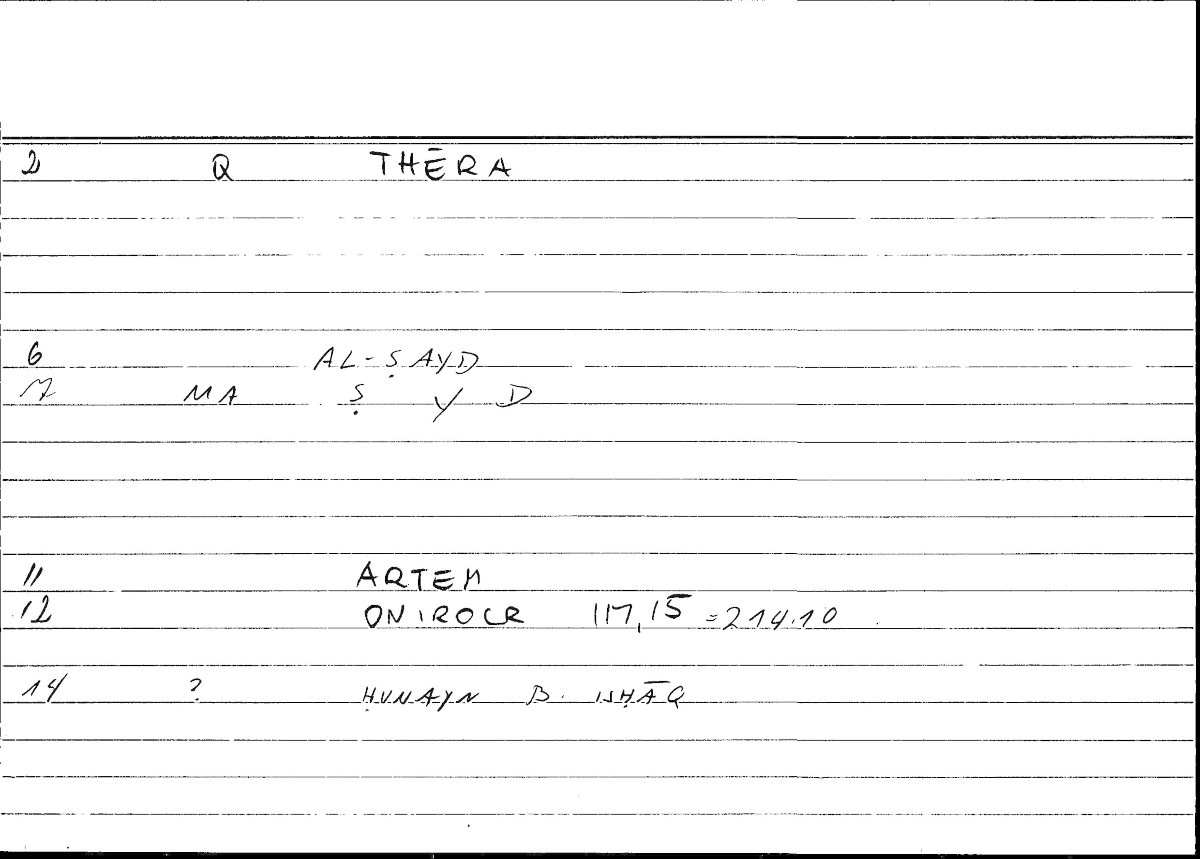 2 Q THĒRA
6 AL-ṢAYD
7 MA Ṣ Y D
11 ARTEM
12 ONIROCR 117,15 =214.10
14 ? ḤUNAYN B. ISḤĀQ